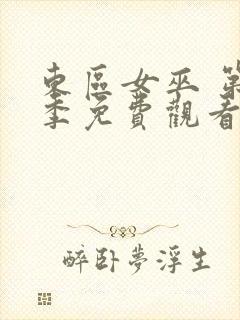 東區女巫 第
季免費觀看
醉卧夢浮生